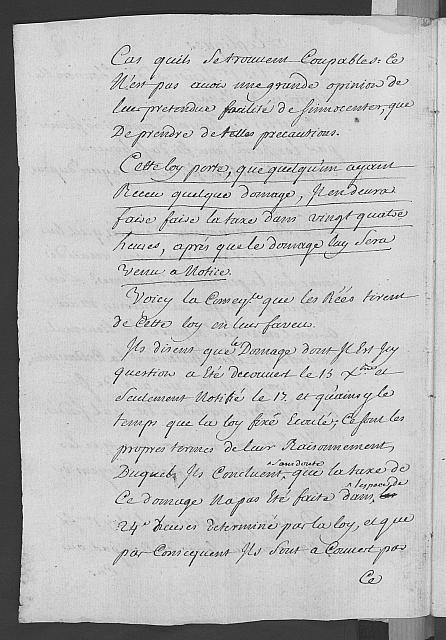 Cas quils Se trouvent Coupables: Ce
N'est pas avoir une grande opinion de
leur pretendue facilité de Sinnocenter, que
De prendre de telles precautions.
Cette loy porte, que quelqu'un ayant
Receu quelque domage, Jl en devra
faire faire la taxe dans vingt quatre
heures, aprés que le domage luy Sera
venu a Notice.
Voicy la Conseqce que les Rées tirent
de Cette loy en leur faveur.
Jls disent que le Domage dont Jl Est Jcy
question a Eté decouvert le 15 Xbre et
Seulement Notifié le 17. et quainsy le
temps que la loy fixe Ecoulé; Ce sont les
propres termes de leur Raisonnement,
Duquel Jls Concluent, Sans doute que la taxe de
Ce domage Na pas Eté faite dans l'espace de
24. heures determiné par la loy, et que
par Consequent Jls Sont a Couvert pas
Ce